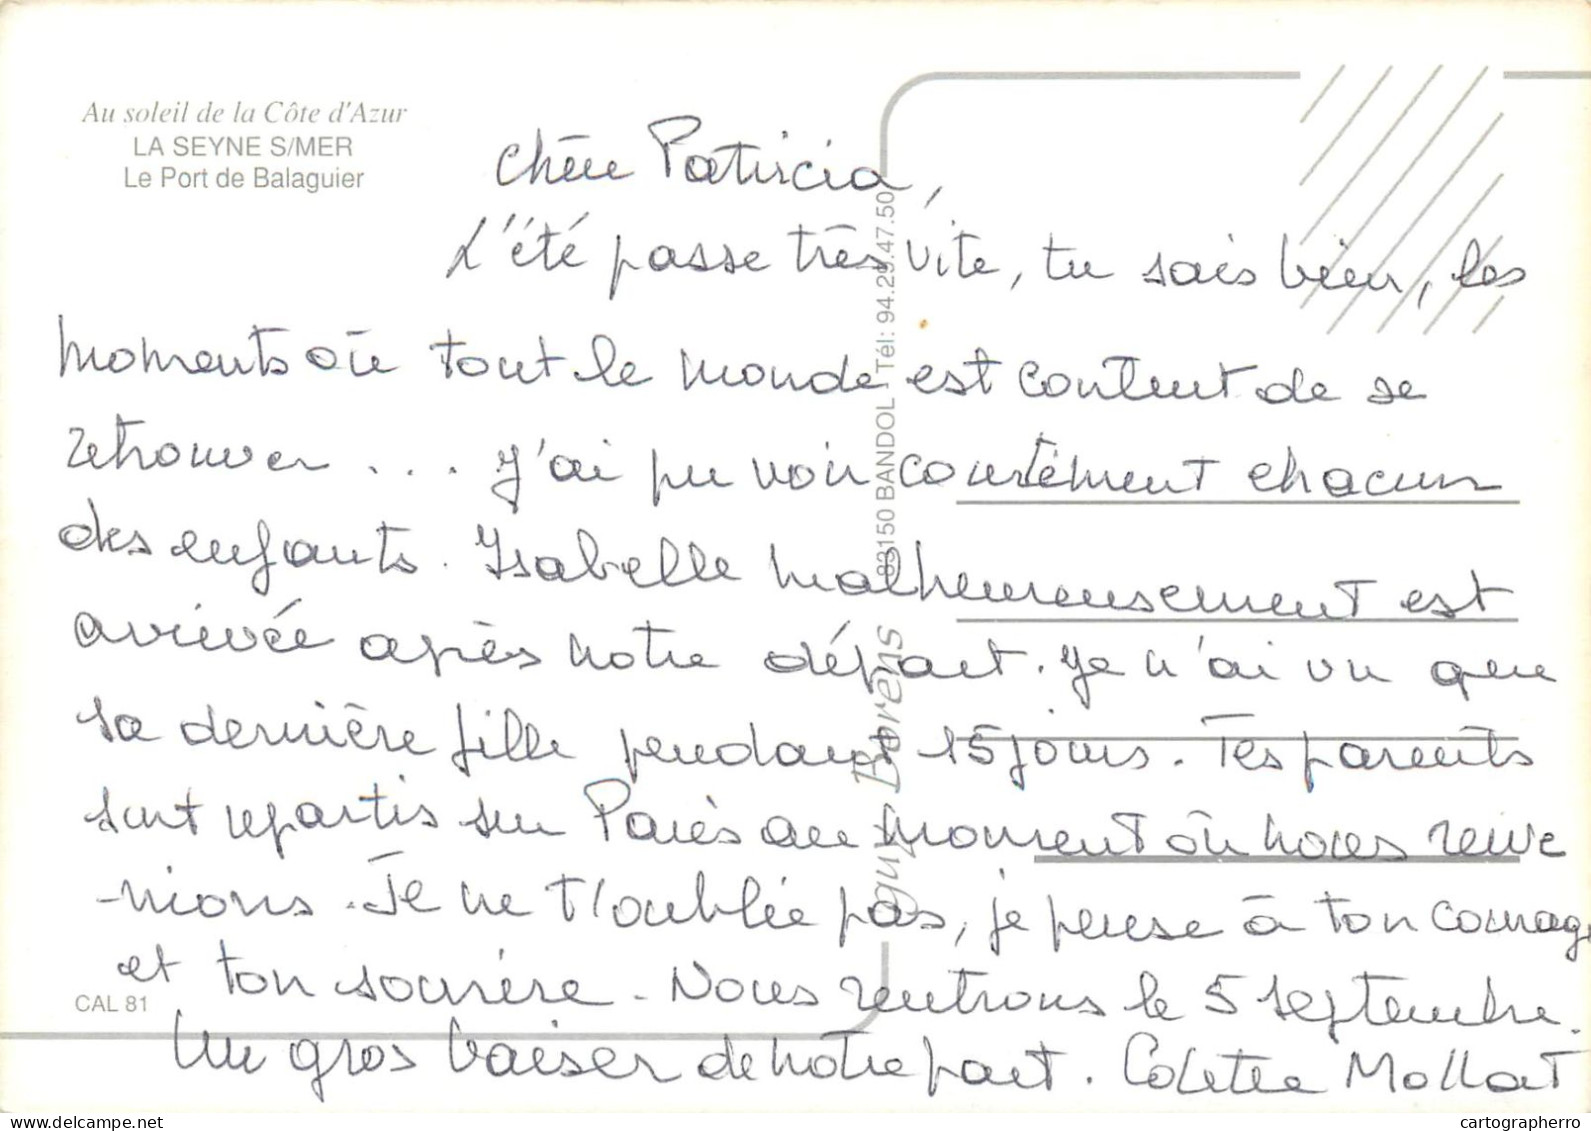 Au soleil de la Côte d'Azur
LA SEYNE S/MER
Le Port de Balaguier
Chère Patricia,
L'été passe très vite, tu sais bien, les
moments où tout le monde est content de se
retrouver ... J'ai pu voir courtement chacun
des enfants. Isabelle malheureusement est
arrivée après notre départ. Je n'ai vu que
sa dernière fille pendant 15 jours. Tes parents
sont repartis sur Paris au moment où nous reve
-nions. Je ne t'oublie pas, je pense à ton courag
et ton sourire. Nous rentrons le 5 septembre.
Un gros baiser de notre part. Colette Mollat
CAL 81
83150 BANDOL - Tél: 94.29.47.50
Guy Borens
cartographerro